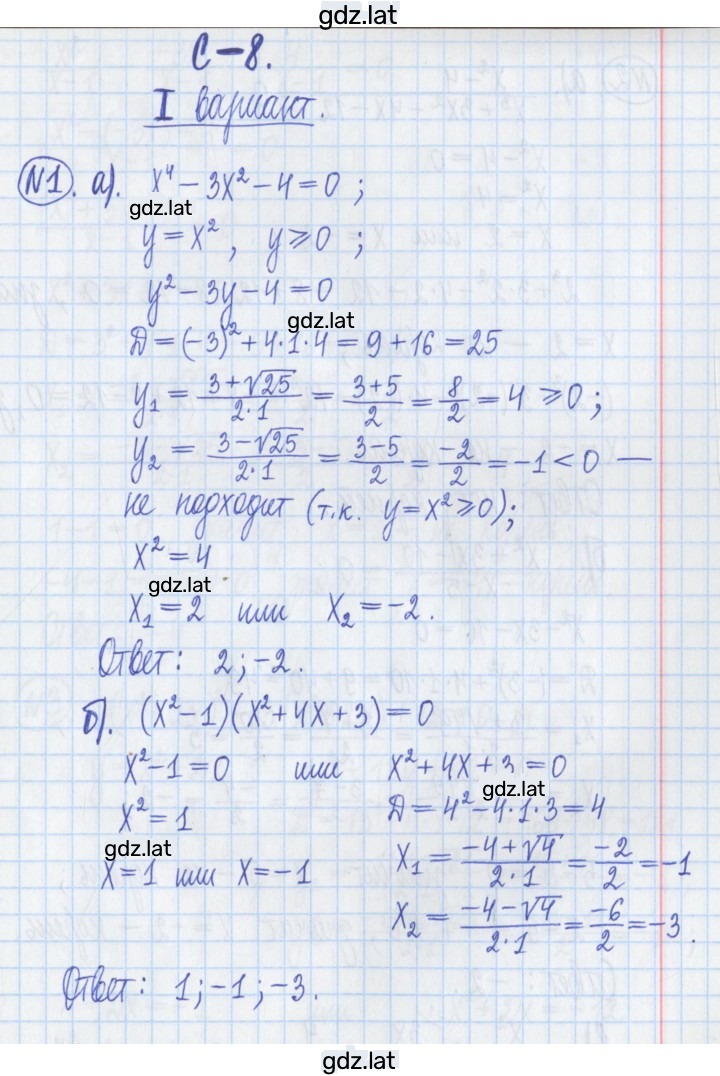 gdz.lat
С-8.
I вариант.
N1. а). x⁴ - 3x² - 4 = 0 ;
gdz.lat
y = x² , y ⩾ 0 ;
y² - 3y - 4 = 0
gdz.lat
D = (-3)² + 4·1·4 = 9 + 16 = 25
y₁ = (3+√25)/(2·1) = (3+5)/2 = 8/2 = 4 ⩾ 0 ;
y₂ = (3-√25)/(2·1) = (3-5)/2 = -2/2 = -1 < 0 —
не подходит (т.к. y = x² ⩾ 0);
x² = 4
gdz.lat
x₁ = 2 или x₂ = -2.
Ответ: 2 ; -2.
б). (x² - 1)(x² + 4x + 3) = 0
x² - 1 = 0 или x² + 4x + 3 = 0
gdz.lat
x² = 1 D = 4² - 4·1·3 = 4
gdz.lat
x = 1 или x = -1 x₁ = (-4+√4)/(2·1) = -2/2 = -1
x₂ = (-4-√4)/(2·1) = -6/2 = -3.
Ответ: 1 ; -1 ; -3.
gdz.lat